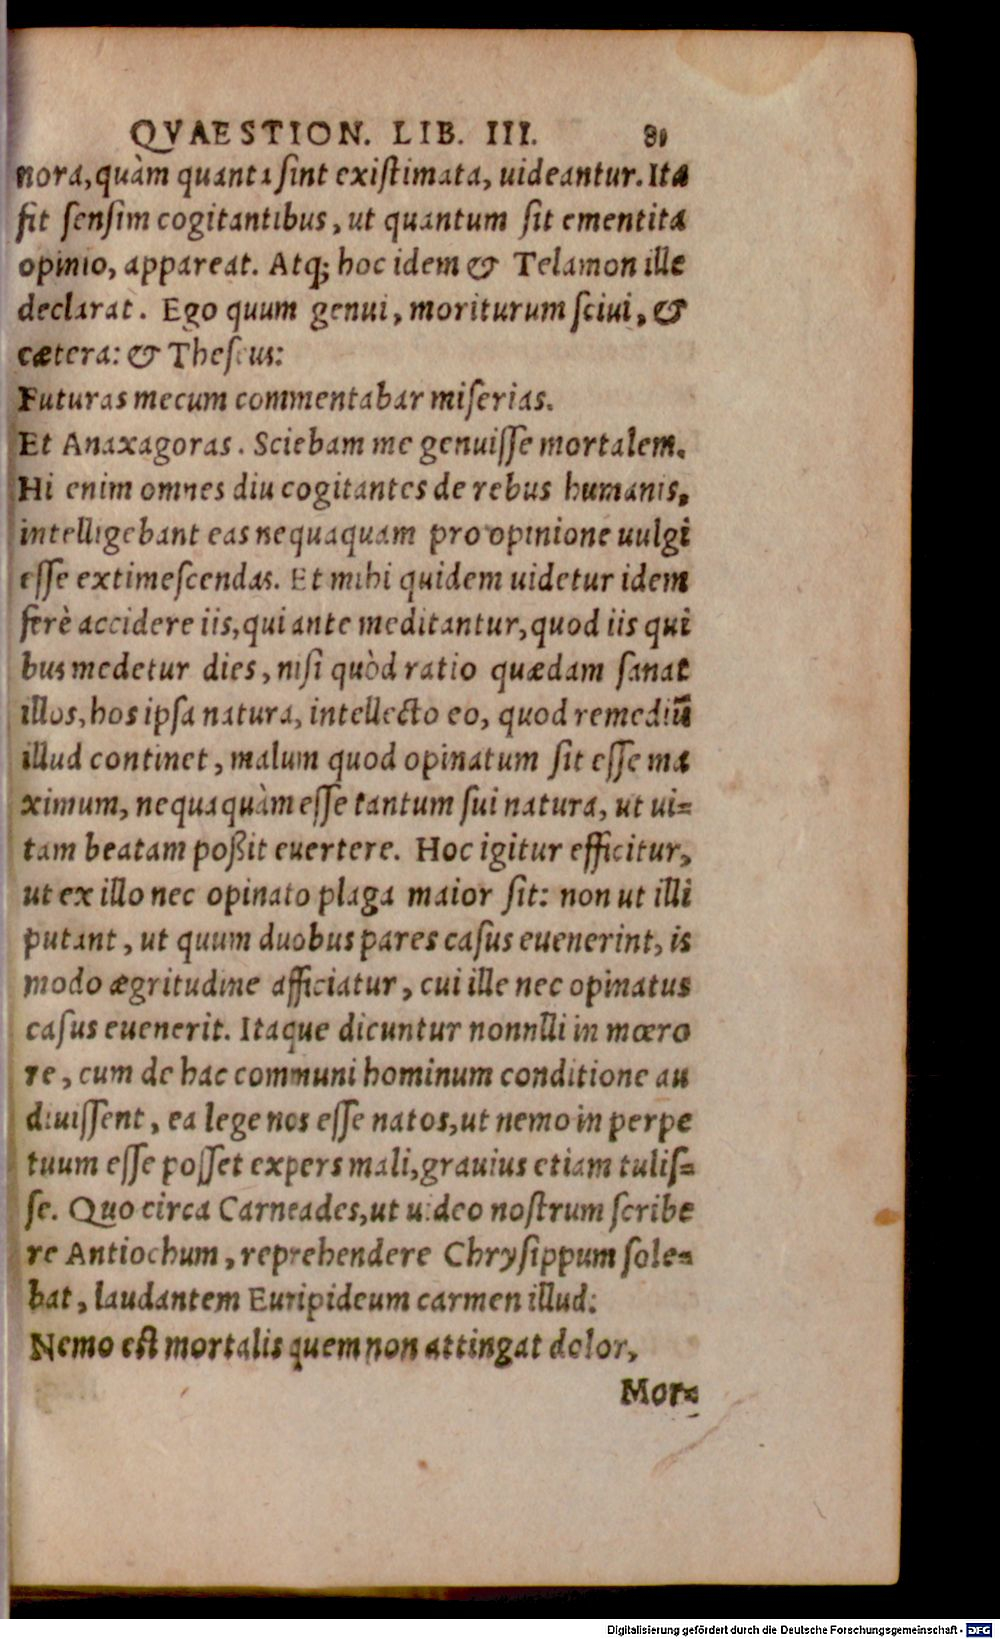 QVAESTION. LIB. III. 81
nora, quàm quanta sint existimata, uideantur. Ita
fit sensim cogitantibus, ut quantum sit ementita
opinio, appareat. Atq; hoc idem & Telamon ille
declarat. Ego quum genui, moriturum sciui, &
cætera: & Theseus:
Futuras mecum commentabar miserias.
Et Anaxagoras. Sciebam me genuisse mortalem.
Hi enim omnes diu cogitantes de rebus humanis,
intelligebant eas nequaquam pro opinione uulgi
esse extimescendas. Et mihi quidem uidetur idem
ferè accidere iis, qui ante meditantur, quod iis qui
bus medetur dies, nisi quòd ratio quædam sanat
illos, hos ipsa natura, intellecto eo, quod remediũ
illud continet, malum quod opinatum sit esse ma
ximum, nequaquàm esse tantum sui natura, ut ui=
tam beatam poßit euertere. Hoc igitur efficitur,
ut ex illo nec opinato plaga maior sit: non ut illi
putant, ut quum duobus pares casus euenerint, is
modo ægritudine afficiatur, cui ille nec opinatus
casus euenerit. Itaque dicuntur nonnlli in mœro
re, cum de hac communi hominum conditione au
diuissent, ea lege nos esse natos, ut nemo in perpe
tuum esse posset expers mali, grauius etiam tulis=
se. Quo circa Carneades, ut uideo nostrum scribe
re Antiochum, reprehendere Chrysippum sole=
bat, laudantem Euripideum carmen illud:
Nemo est mortalis quem non attingat dolor,
Mor=
Digitalisierung gefördert durch die Deutsche Forschungsgemeinschaft - DFG